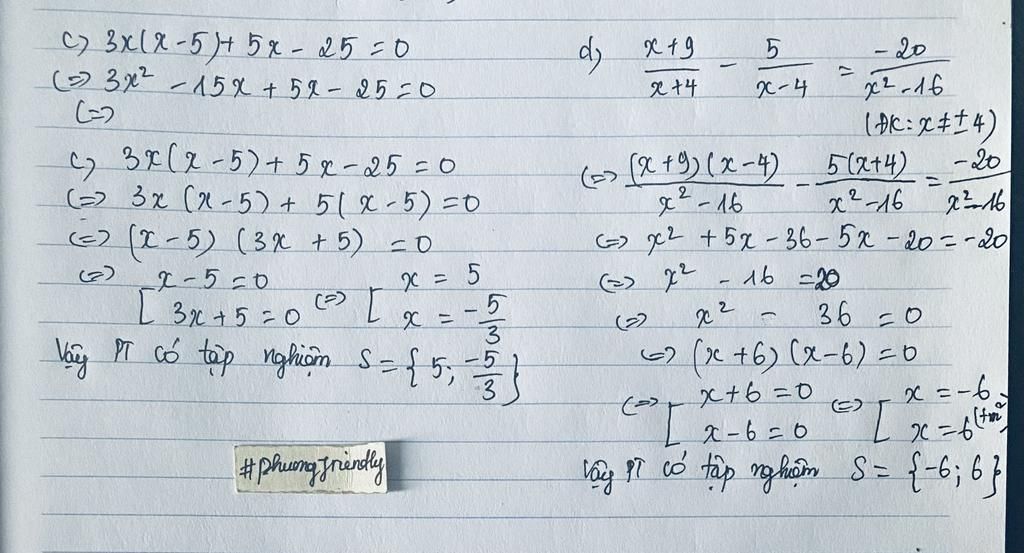 c) 3x(x-5)+5x-25=0
(=) 3x² -15x+5x-25=0
(=)
c) 3x(x-5)+5x-25=0
(=) 3x(x-5)+5(x-5)=0
(=) (x-5)(3x+5)=0
(=) [ x-5=0 (=) [ x=5
3x+5=0 x=-5/3
Vậy PT có tập nghiệm S={5; -5/3}
#phuongfriendly
d) (x+9)/(x+4) - 5/(x-4) = -20/(x²-16)
(ĐK: x≠±4)
(=) (x+9)(x-4)/(x²-16) - 5(x+4)/(x²-16) = -20/(x²-16)
(=) x²+5x-36-5x-20=-20
(=) x² -16 =20
(=) x² - 36 = 0
(=) (x+6)(x-6)=0
(=) [ x+6=0 (=) [ x=-6
x-6=0 x=6 (tm)
Vậy PT có tập nghiệm S={-6; 6}